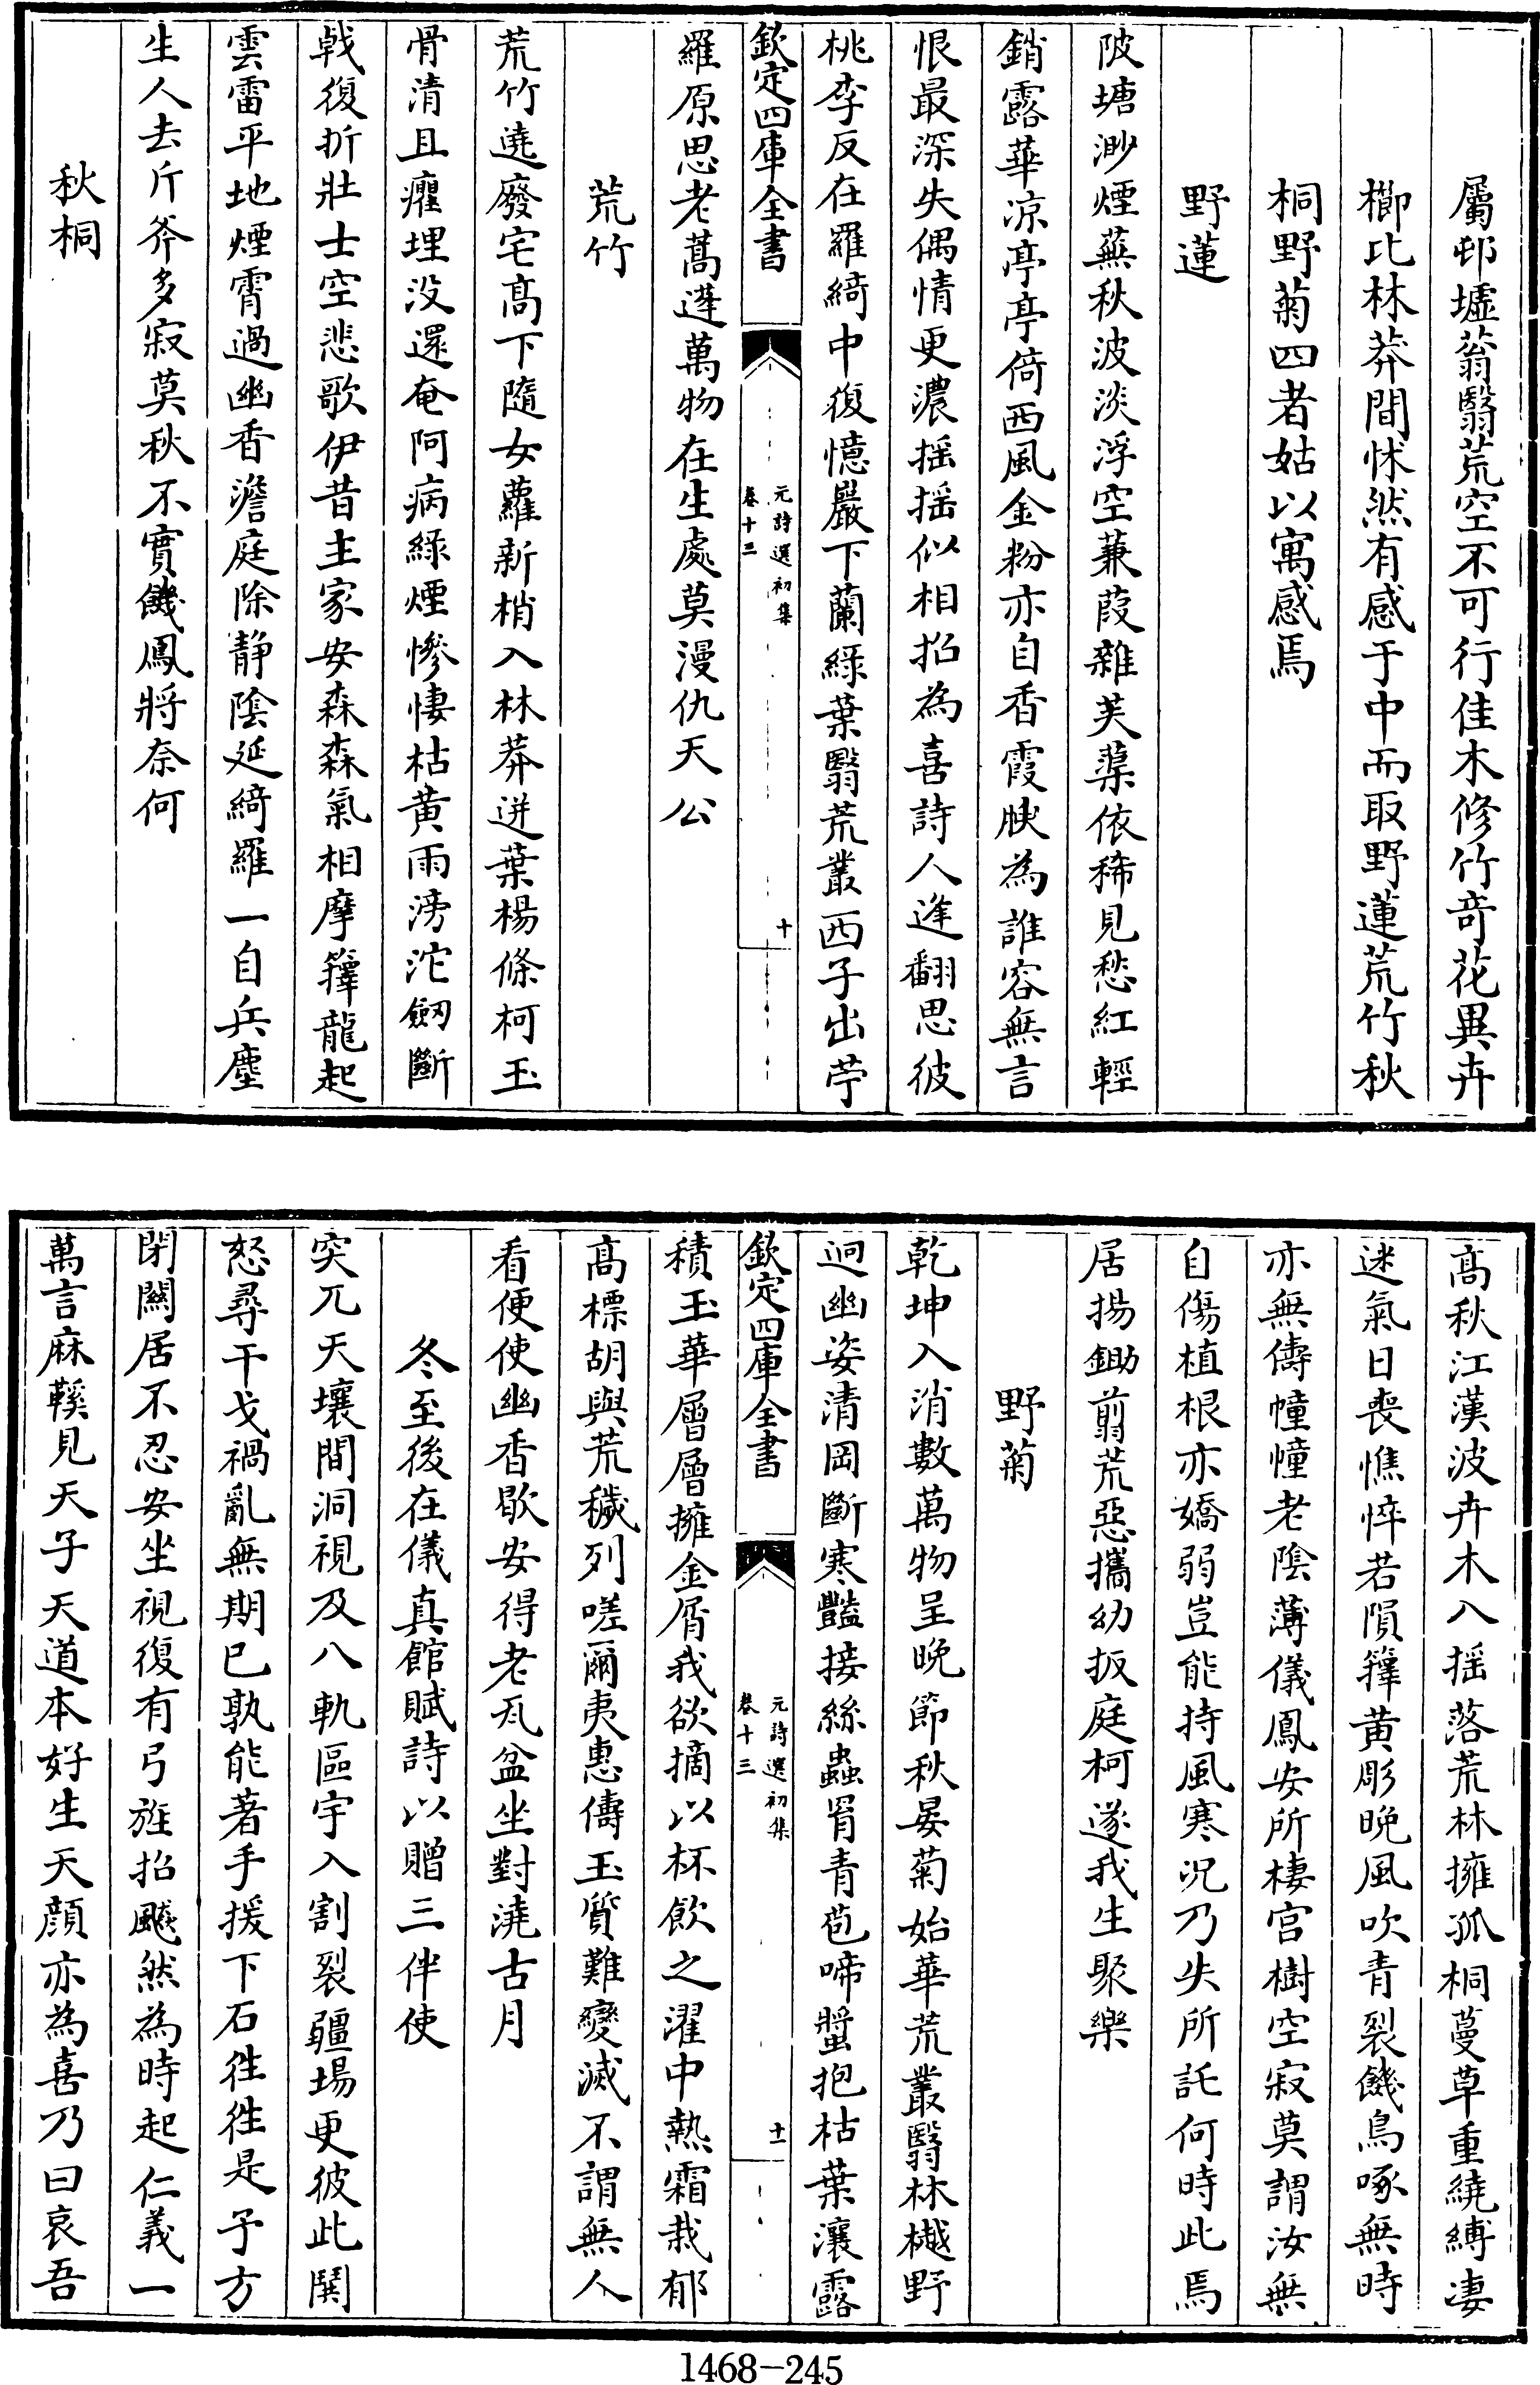 屬邨墟蓊翳荒空不可行佳木修竹竒花異卉
櫛比林莽間怵然有感于中而取野蓮荒竹秋
桐野菊四者姑以寓感焉
野蓮
陂塘渺煙蕪秋波淡浮空蒹葭雜芙蕖依稀見愁紅輕
銷露華凉亭亭倚西風金粉亦自香霞腴為誰容無言
恨最深失偶情更濃揺揺似相招為喜詩人逢翻思彼
桃李反在羅綺中復憶巖下蘭緑葉翳荒叢西子出苧
欽定四庫全書
元詩選初集
卷十三
十
羅原思老蒿蓬萬物在生處莫漫仇天公
荒竹
荒竹遶廢宅高下隨女蘿新梢入林莽迸葉楊條柯玉
骨清且癯埋没還奄阿病緑煙慘悽枯黄雨滂沱劒斷
戟復折壯士空悲歌伊昔主家安森森氣相摩籜龍起
雲雷平地煙霄過幽香澹庭除静陰延綺羅一自兵塵
生人去斤斧多寂莫秋不實饑鳳將奈何
秋桐
高秋江漢波卉木入揺落荒林擁孤桐蔓草重繞縛凄
迷氣日喪憔悴若隕籜黄彫晚風吹青裂饑鳥啄無時
亦無儔幢幢老陰薄儀鳳安所棲宫樹空寂莫謂汝無
自傷植根亦嬌弱豈能持風寒况乃失所託何時此焉
居揚鋤翦荒惡攜幼扳庭柯遂我生聚樂
野菊
乾坤入消數萬物呈晚節秋晏菊始華荒叢翳林樾野
迥幽姿清岡斷寒豔接絲蟲罥青苞啼螿抱枯葉瀼露
欽定四庫全書
元詩選初集
卷十三
十一
積玉華層層擁金屑我欲摘以杯飲之濯中熱霜栽郁
高標胡與荒穢列嗟爾夷惠儔玉質難變滅不謂無人
看便使幽香歇安得老瓦盆坐對澆古月
冬至後在儀真館賦詩以贈三伴使
突兀天壤間洞視及八軌區宇入割裂疆場更彼此鬩
怒尋干戈禍亂無期已孰能著手援下石徃徃是予方
閉闗居不忍安坐視復有弓旌招飉然為時起仁義一
萬言麻鞵見天子天道本好生天顔亦為喜乃曰哀吾
1468-245